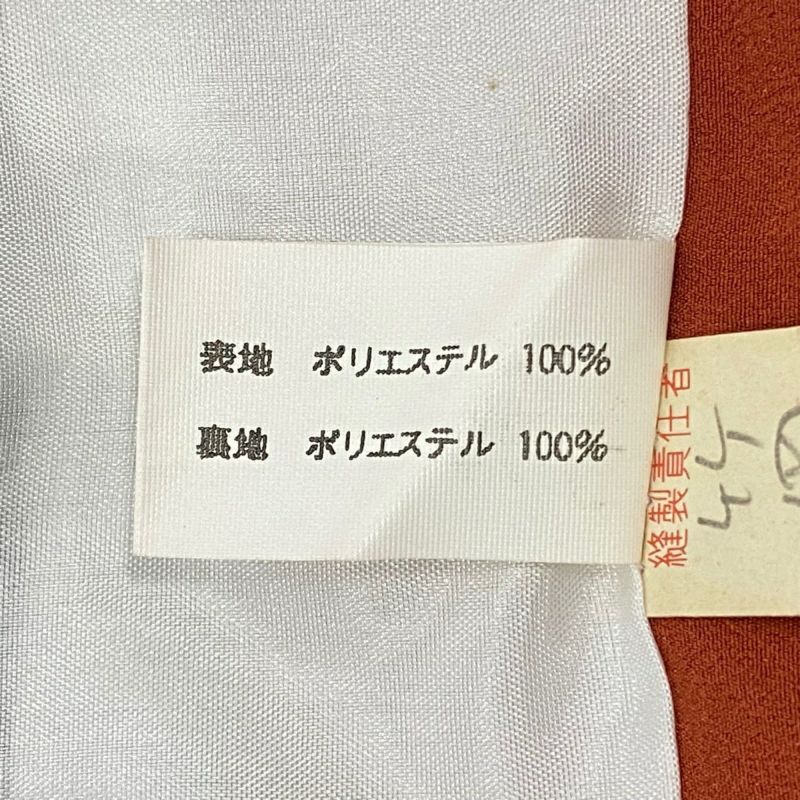 表地 ポリエステル 100%
裏地 ポリエステル 100%
縫製責任者